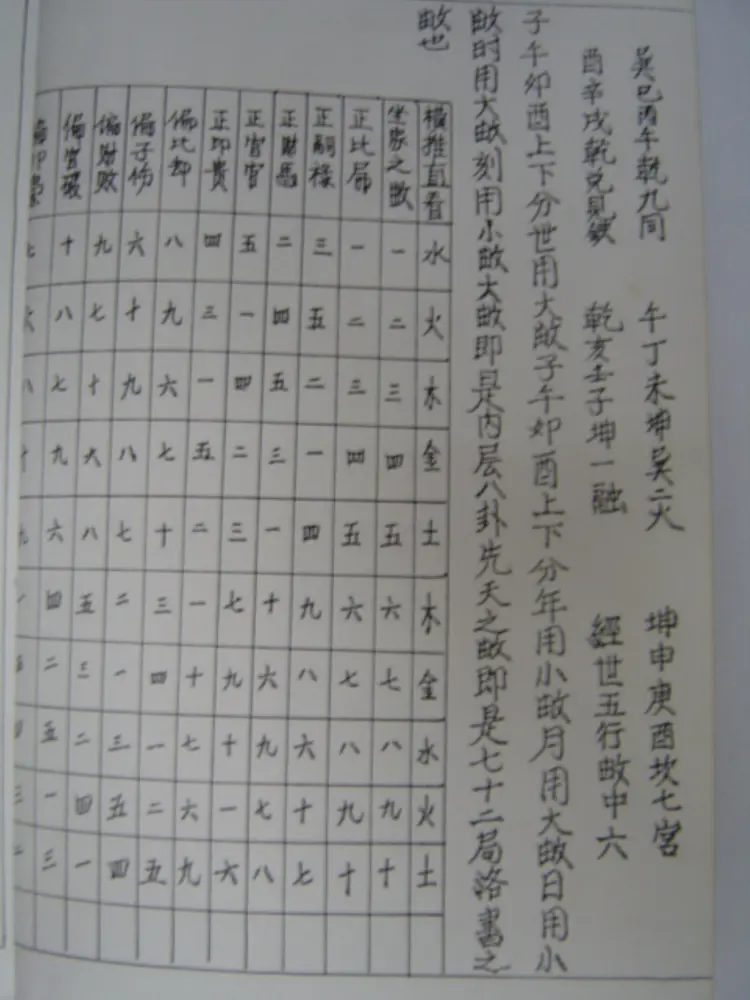 巽巳丙午乾九同　午丁未坤巽二火　坤申庚酉坎七宮
酉辛戌乾兌見缺　乾亥壬子坤一融　經世五行数中六
子午卯酉上下分世用大数子午卯酉上下分年用小数月用大数日用小
数时用大数刻用小数大数即是内层八卦先天之数即是七十二局洛書之
数也
横推直看 水 火 木 金 土 木 金 水 火 土
坐家之数 一 二 三 四 五 六 七 八 九 十
正比局 一 二 三 四 五 六 七 八 九 十
正嗣祿 三 五 二 一 四 九 八 六 十 七
正財馬 二 四 五 三 一 十 六 九 七 八
正官官 五 一 四 二 三 七 九 十 一 六
正印貴 四 三 一 五 二 一 十 七 六 九
偏比却 八 九 六 七 十 三 四 一 二 五
偏子伤 六 十 九 八 七 二 一 三 五 四
偏財敗 九 七 十 六 八 五 三 二 四 一
偏官破 十 八 七 九 六 四 二 五 一 三